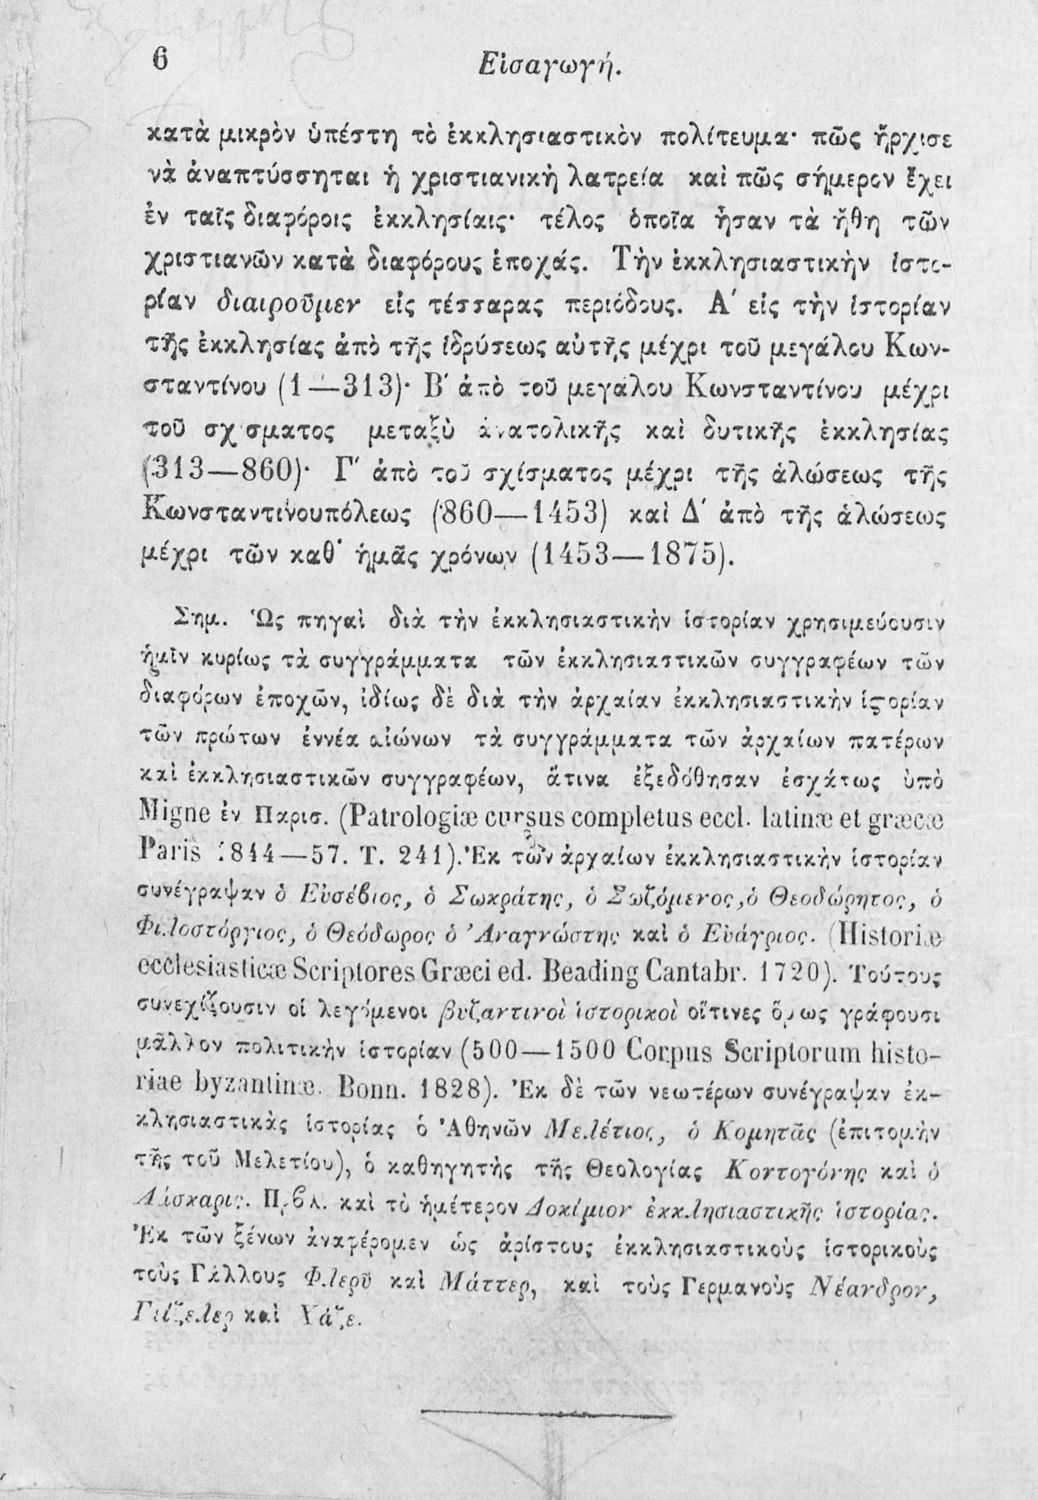 6
Εἰσαγωγή.
κατὰ μικρὸν ὑπέστη τὸ ἐκκλησιαστικὸν πολίτευμα· πῶς ἤρχισε
νὰ ἀναπτύσσηται ἡ χριστιανικὴ λατρεία καὶ πῶς σήμερον ἔχει
ἐν ταῖς διαφόροις ἐκκλησίαις· τέλος ὁποῖα ἦσαν τὰ ἤθη τῶν
χριστιανῶν κατὰ διαφόρους ἐποχάς. Τὴν ἐκκλησιαστικὴν ἱστο-
ρίαν διαιροῦμεν εἰς τέσσαρας περιόδους. Α΄ εἰς τὴν ἱστορίαν
τῆς ἐκκλησίας ἀπὸ τῆς ἱδρύσεως αὐτῆς μέχρι τοῦ μεγάλου Κων-
σταντίνου (1—313)· Β΄ ἀπὸ τοῦ μεγάλου Κωνσταντίνου μέχρι
τοῦ σχίσματος μεταξὺ ἀνατολικῆς καὶ δυτικῆς ἐκκλησίας
(313—860)· Γ΄ ἀπὸ τοῦ σχίσματος μέχρι τῆς ἁλώσεως τῆς
Κωνσταντινουπόλεως (860—1453) καὶ Δ΄ ἀπὸ τῆς ἁλώσεως
μέχρι τῶν καθ᾽ ἡμᾶς χρόνων (1453—1875).
Σημ. Ὡς πηγαὶ διὰ τὴν ἐκκλησιαστικὴν ἱστορίαν χρησιμεύουσιν
ἡμῖν κυρίως τὰ συγγράμματα τῶν ἐκκλησιαστικῶν συγγραφέων τῶν
διαφόρων ἐποχῶν, ἰδίως δὲ διὰ τὴν ἀρχαίαν ἐκκλησιαστικὴν ἱστορίαν
τῶν πρώτων ἐννέα αἰώνων τὰ συγγράμματα τῶν ἀρχαίων πατέρων
καὶ ἐκκλησιαστικῶν συγγραφέων, ἅτινα ἐξεδόθησαν ἐσχάτως ὑπὸ
Migne ἐν Παρισ. (Patrologiæ cursus completus eccl. latinæ et græcæ
Paris 1844—57. T. 241). Ἐκ τῶν ἀρχαίων ἐκκλησιαστικὴν ἱστορίαν
συνέγραψαν ὁ Εὐσέβιος, ὁ Σωκράτης, ὁ Σωζόμενος, ὁ Θεοδώρητος, ὁ
Φιλοστόργιος, ὁ Θεόδωρος ὁ Ἀναγνώστης καὶ ὁ Εὐάγριος. (Historiæ
ecclesiasticæ Scriptores Græci ed. Beading Cantabr. 1720). Τούτους
συνεχίζουσιν οἱ λεγόμενοι βυζαντινοὶ ἱστορικοὶ οἵτινες ὅμως γράφουσι
μᾶλλον πολιτικὴν ἱστορίαν (500—1500 Corpus Scriptorum histo-
riae byzantinæ. Bonn. 1828). Ἐκ δὲ τῶν νεωτέρων συνέγραψαν ἐκ-
κλησιαστικὰς ἱστορίας ὁ Ἀθηνῶν Μελέτιος, ὁ Κομητᾶς (ἐπιτομὴν
τῆς τοῦ Μελετίου), ὁ καθηγητὴς τῆς Θεολογίας Κοντογόνης καὶ ὁ
Λάσκαρις. Πρβλ. καὶ τὸ ἡμέτερον Δοκίμιον ἐκκλησιαστικῆς ἱστορίας.
Ἐκ τῶν ξένων ἀναφέρομεν ὡς ἀρίστους ἐκκλησιαστικοὺς ἱστορικοὺς
τοὺς Γάλλους Φλερῦ καὶ Μάττερ, καὶ τοὺς Γερμανοὺς Νέανδρον,
Γιέζελερ καὶ Χάζε.